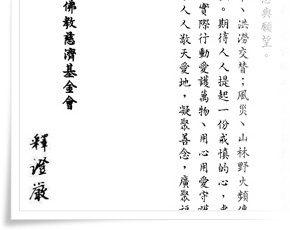 與願望。
、洪澇交替；風災、山林野火頻
。期待人人提起一份戒慎的心，
實際行動愛護萬物、用心用愛守護
人人敬天愛地，凝聚善念，廣聚
佛教慈濟基金會
釋證嚴